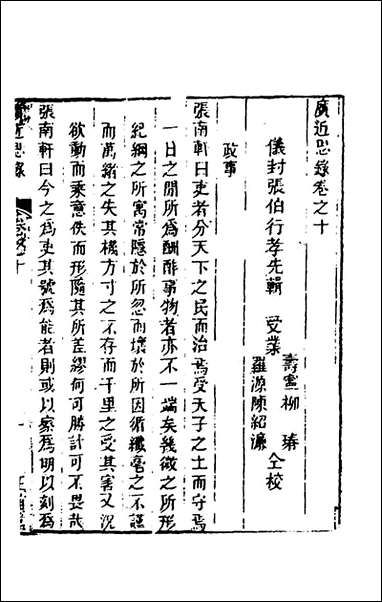 廣近思錄卷之十
儀封張伯行孝先輯 受業
壽寧柳 瑃
羅源陳紹濂
仝校
政事
張南軒曰吏者分天下之民而治焉受天子之土而守焉
一日之間所為酬酢事物者亦不一端矣幾微之所形
紀綱之所寓常隱於所忽而壞於所因循纖毫之不謹
而萬緒之失其機方寸之不存而千里之受其害又況
欲動而乘意佚而形隨其所差繆何可勝計可不畏哉
張南軒曰今之為吏其號為能者則或以察為明以刻為
廣近思錄
卷之十
一